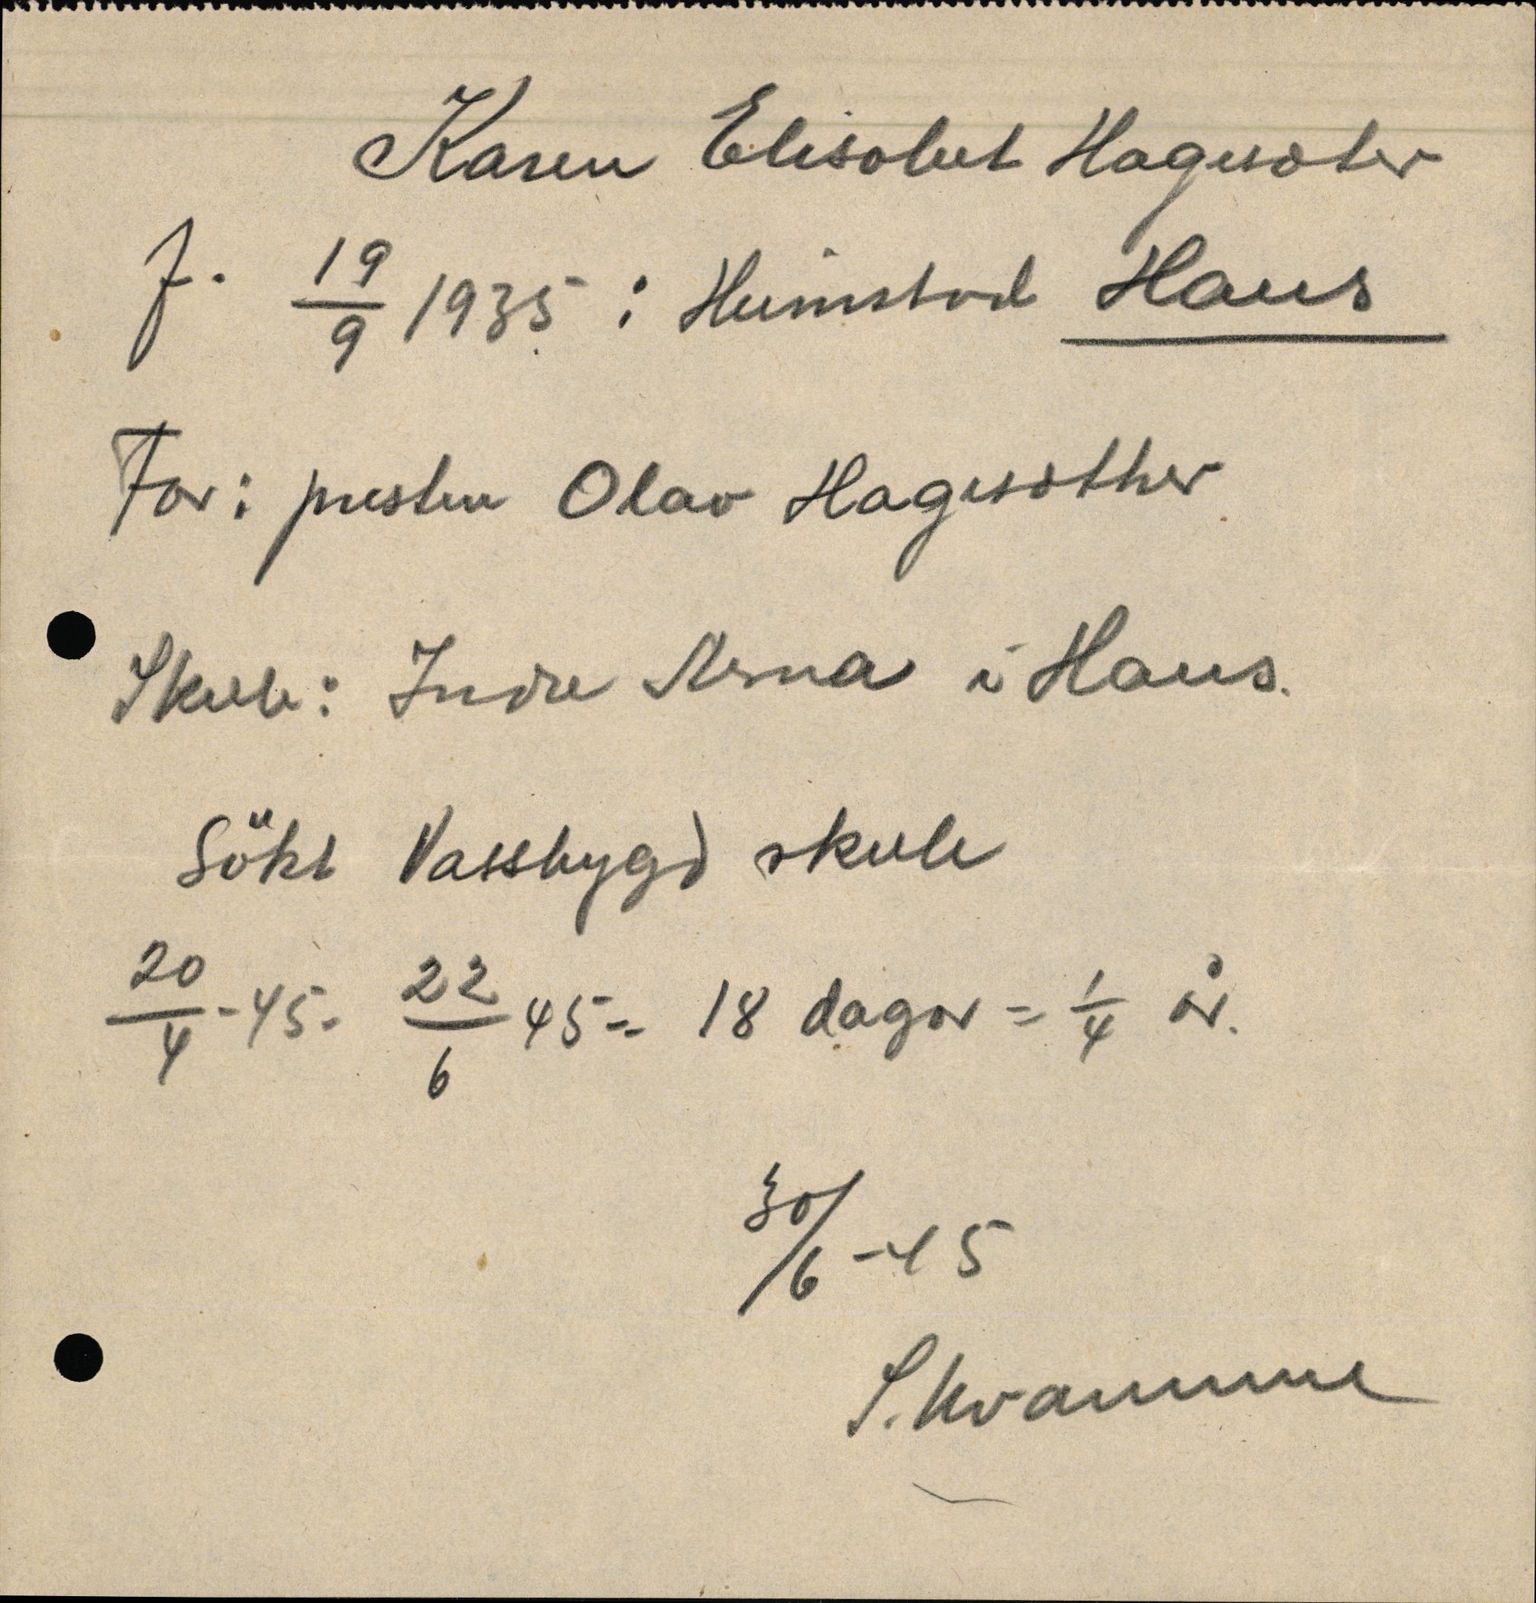 Karen Elisabet Hagesæter
f. 19/9 1935 : Heimstad Haus
Far: presten Olav Hagesæther
Skule: Indre Arna i Haus.
Sökt Vassbygd skule
20/4 -45- 22/6 45= 18 dagar = 1/4 år.
30/6 -45
S. Kvamme